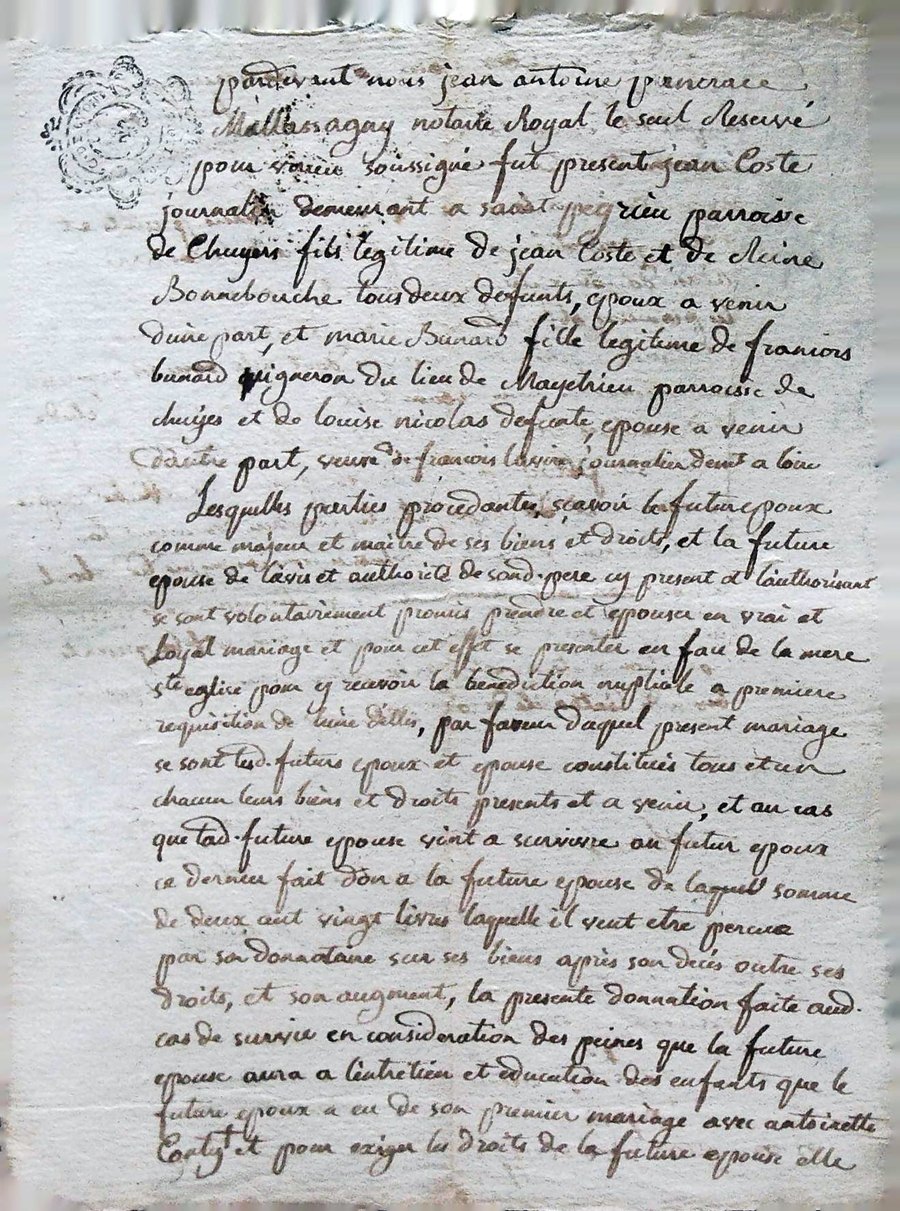 pardevant nous jean antoine pancrace
notaire Royal le seul Reservé
pour soussigné fut present jean Coste
journalier demeurant a saint parroisse
de Chuyers fils legitime de jean Coste et de Reine
Bonnebouche tous deux defunts, epoux a venir
d'une part, et marie Bunard fille legitime de francois
bunard vigneron du lieu de parroisse de
chuyes et de louise nicolas defunte, epouse a venir
d'autre part, veuve de francois journalier demt a loire
Lesquelles parties procedantes, scavoir le futur epoux
comme majeur et maitre de ses biens et droits, et la future
epouse de l'avis et authorité de sond. pere cy present et l'authorisant
se sont volontairement promis prendre et epouser en vrai et
Loyal mariage et pour cet effet se presenter en face de la mere
ste eglise pour y recevoir la benediction nuptiale a premiere
requisition de l'une d'elles, par faveur duquel present mariage
se sont lesd. futurs epoux et epouse constitués tous et un
chacun leurs biens et droits presents et a venir, et au cas
que lad. future epouse vint a survivre au futur epoux
ce dernier fait don a la future epouse de somme
de deux cent vingt livres laquelle il veut etre percue
par sa donnataire sur ses biens après son décés outre ses
droits, et son augment, la presente donnation faite aud.
cas de survie en consideration des peines que la future
epouse aura a l'entretien et education des enfants que le
futur epoux a eu de son premier mariage avec antoinette
et pour exiger les droits de la future epouse elle